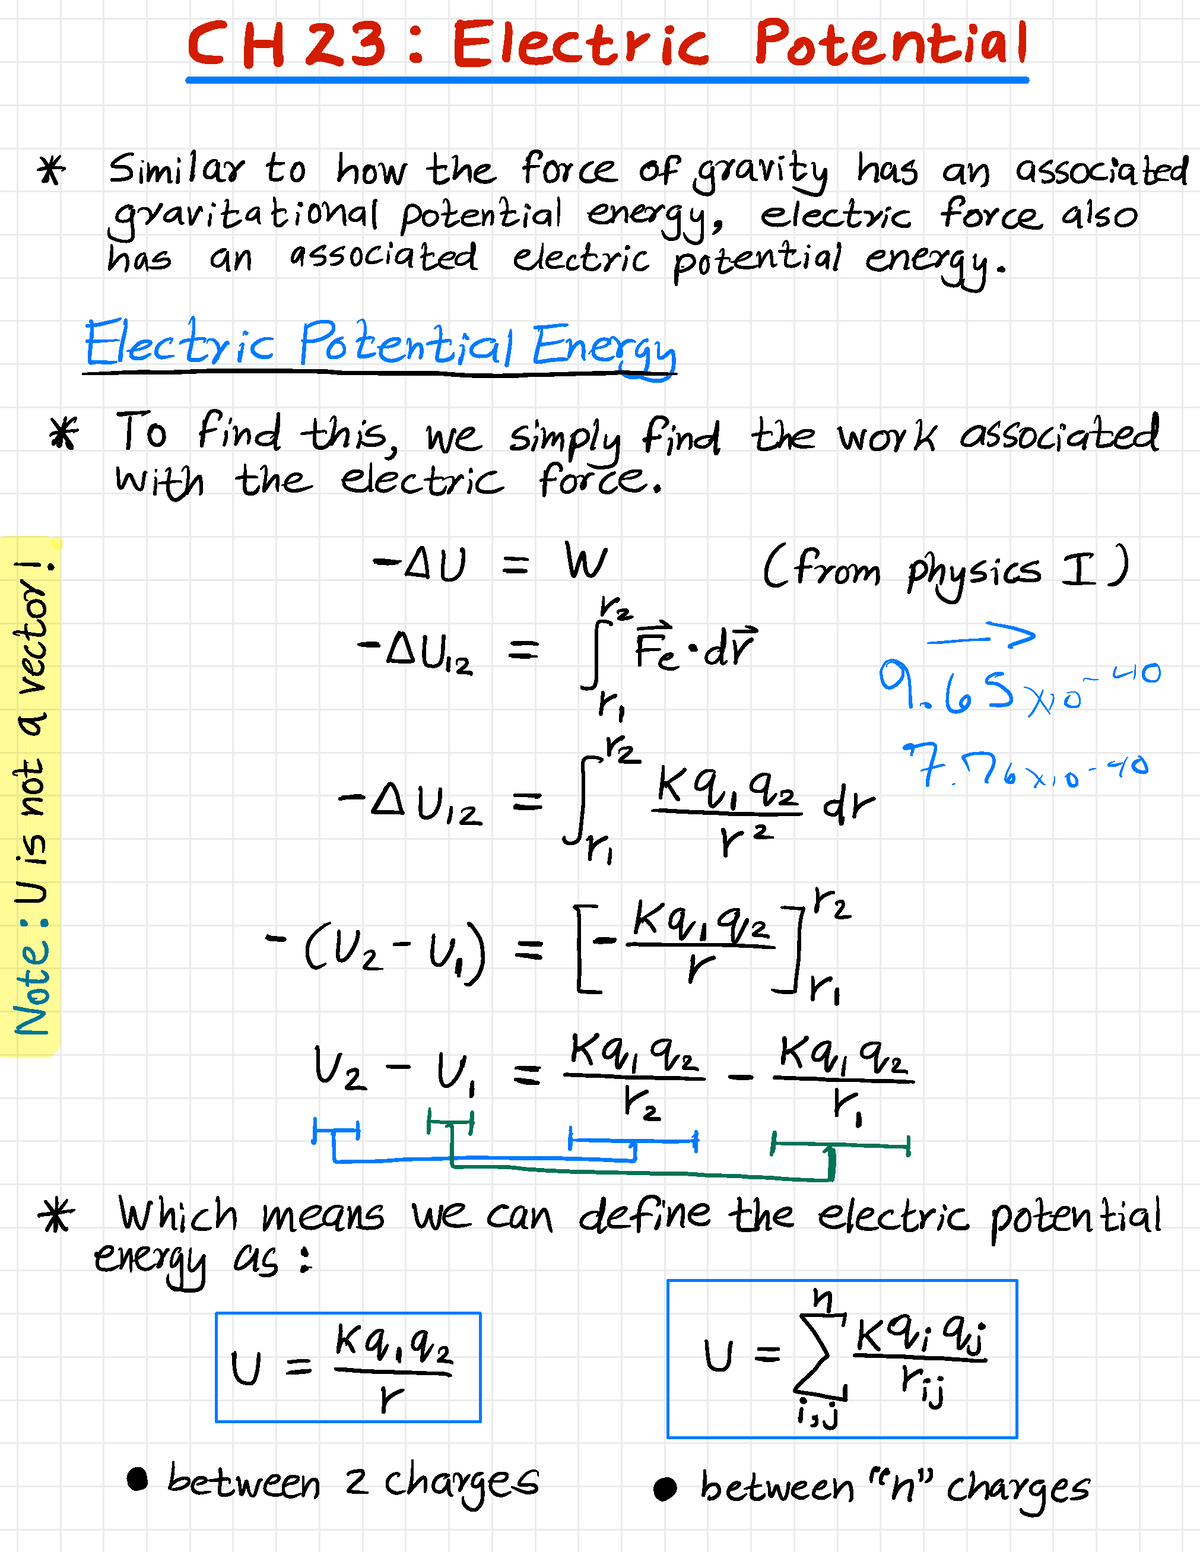 CH 23 : Electric Potential
* Similar to how the force of gravity has an associated
gravitational potential energy, electric force also
has an associated electric potential energy.
Electric Potential Energy
* To find this, we simply find the work associated
with the electric force.
-ΔU = W (from physics I)
-ΔU₁₂ = ∫_{r₁}^{r₂} F⃗e · dr⃗
9.65 x10⁻⁴⁰
7.76 x10⁻⁴⁰
-ΔU₁₂ = ∫_{r₁}^{r₂} Kq₁q₂/r² dr
-(U₂ - U₁) = [-Kq₁q₂/r]_{r₁}^{r₂}
U₂ - U₁ = Kq₁q₂/r₂ - Kq₁q₂/r₁
Note: U is not a vector!
* Which means we can define the electric potential
energy as :
U = Kq₁q₂/r
U = Σ_{i,j}^{n} Kqᵢqⱼ/rᵢⱼ
• between 2 charges
• between "n" charges